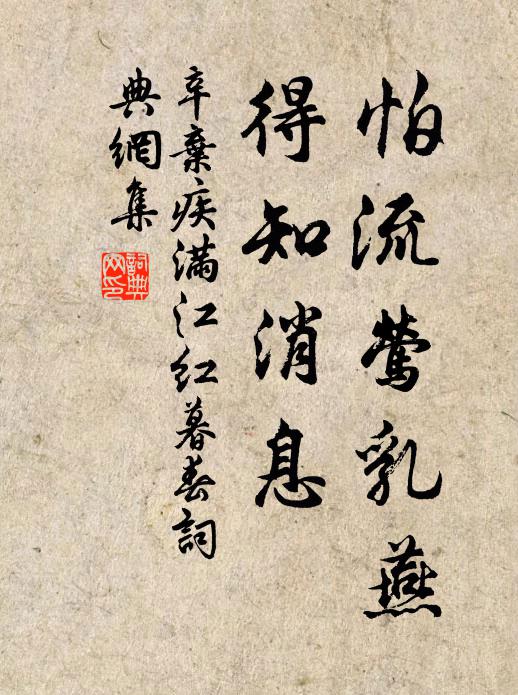 怕流莺乳燕
得知消息
辛棄疾满江红暮春詞
典網集
詞典網印